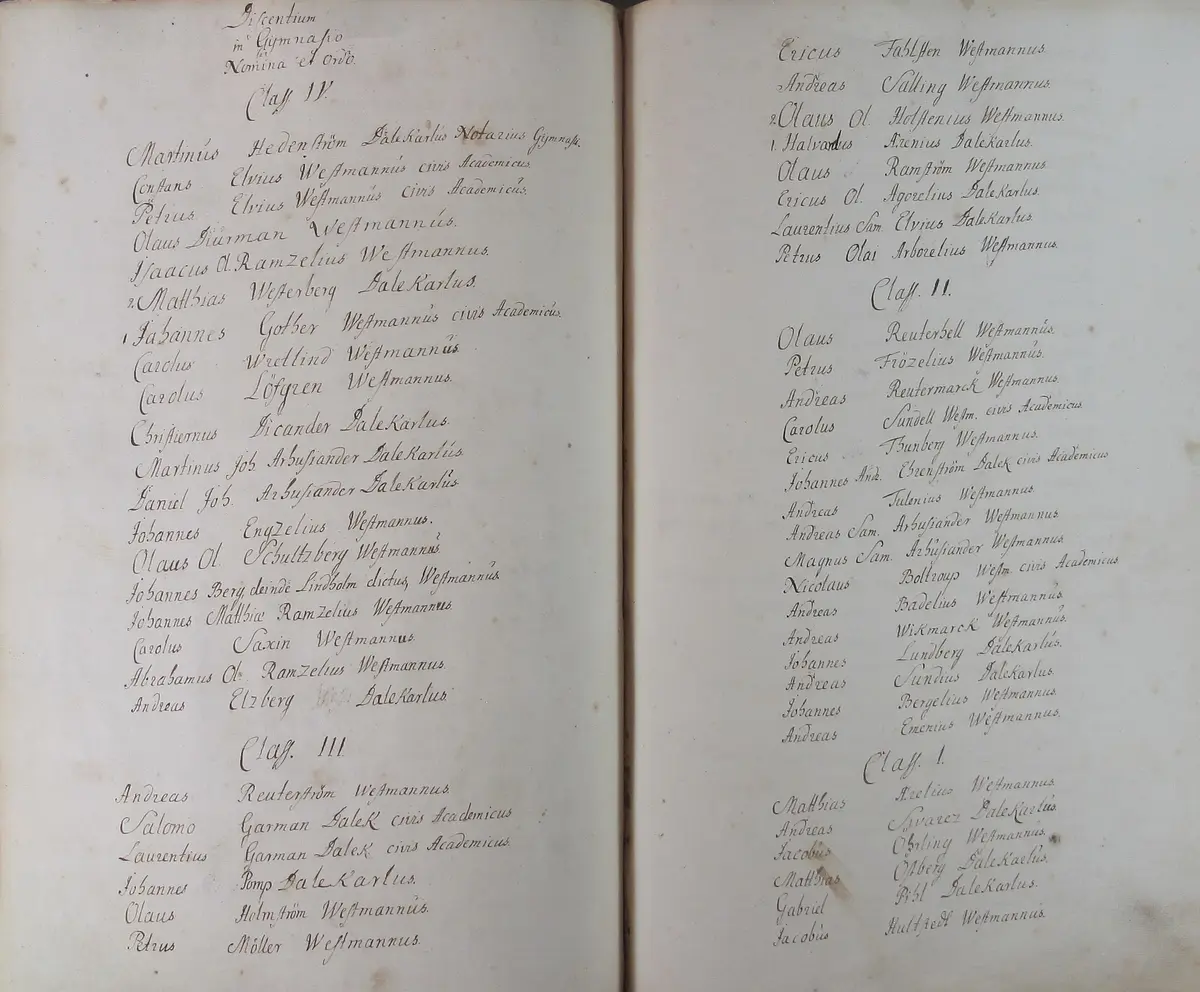 Discentium
in Gymnasio
Nomina et Ordo.
Class. IV.
Martinus Hedenström Dalekarlus Notarius Gymnasii.
Constans Elvius Westmannus civis Academicus
Petrus Elvius Westmannus civis Academicus.
Olaus Diurman Westmannus.
Isaacus Ol. Ramzelius Westmannus.
2. Matthias Westerberg Dalekarlus.
1 Johannes Gother Westmannus civis Academicus.
Carolus Wretlind Westmannus
Carolus Löfgren Westmannus.
Christiernus Dicander Dalekarlus.
Martinus Joh Arhusiander Dalekarlus
Daniel Joh. Arhusiander Dalekarlus
Johannes Engzelius Westmannus.
Olaus Ol. Schultzberg Westmannus.
Johannes Berg, deinde Lindholm dictus, Westmannus
Johannes Matthiæ Ramzelius Westmannus.
Carolus Saxin Westmannus.
Abrahamus Ol. Ramzelius Westmannus.
Andreas Elzberg Dalekarlus
Class. III
Andreas Reuterström Westmannus.
Salomo Garman Dalek civis Academicus
Laurentius Garman Dalek civis Academicus.
Johannes Pomp Dalekarlus.
Olaus Holmström Westmannus.
Petrus Möller Westmannus.
Ericus Fahlsten Westmannus.
Andreas Salling Westmannus.
2. Olaus Ol. Holstenius Westmannus.
1. Halvardus Arenius Dalekarlus.
Olaus Ramström Westmannus.
Ericus Ol. Agorelius Dalekarlus
Laurentius Sam. Elvius Dalekarlus.
Petrus Olai Arborelius Westmannus.
Class. II.
Olaus Reuterhell Westmannus.
Petrus Frözelius Westmannus.
Andreas Reutermarck Westmannus.
Carolus Sundell Westm. civis Academicus.
Ericus Thunberg Westmannus.
Johannes And. Ehrenström Dalek civis Academicus
Andreas Tulenius Westmannus
Andreas Sam. Arhusiander Westmannus.
Magnus Sam. Arhusiander Westmannus.
Nicolaus Boltroup Westm. civis Academicus
Andreas Badelius Westmannus.
Andreas Wikmarck Westmannus.
Johannes Lundberg Dalekarlus.
Andreas Sundius Dalekarlus.
Johannes Bergelius Westmannus.
Andreas Emenius Westmannus.
Class. I.
Matthias Arelius Westmannus.
Andreas Svarez Dalekarlus.
Jacobus Ohrling Westmannus.
Matthias Ölberg Dalekarlus.
Gabriel Pihl Dalekarlus.
Jacobus Hultstedt Westmannus.